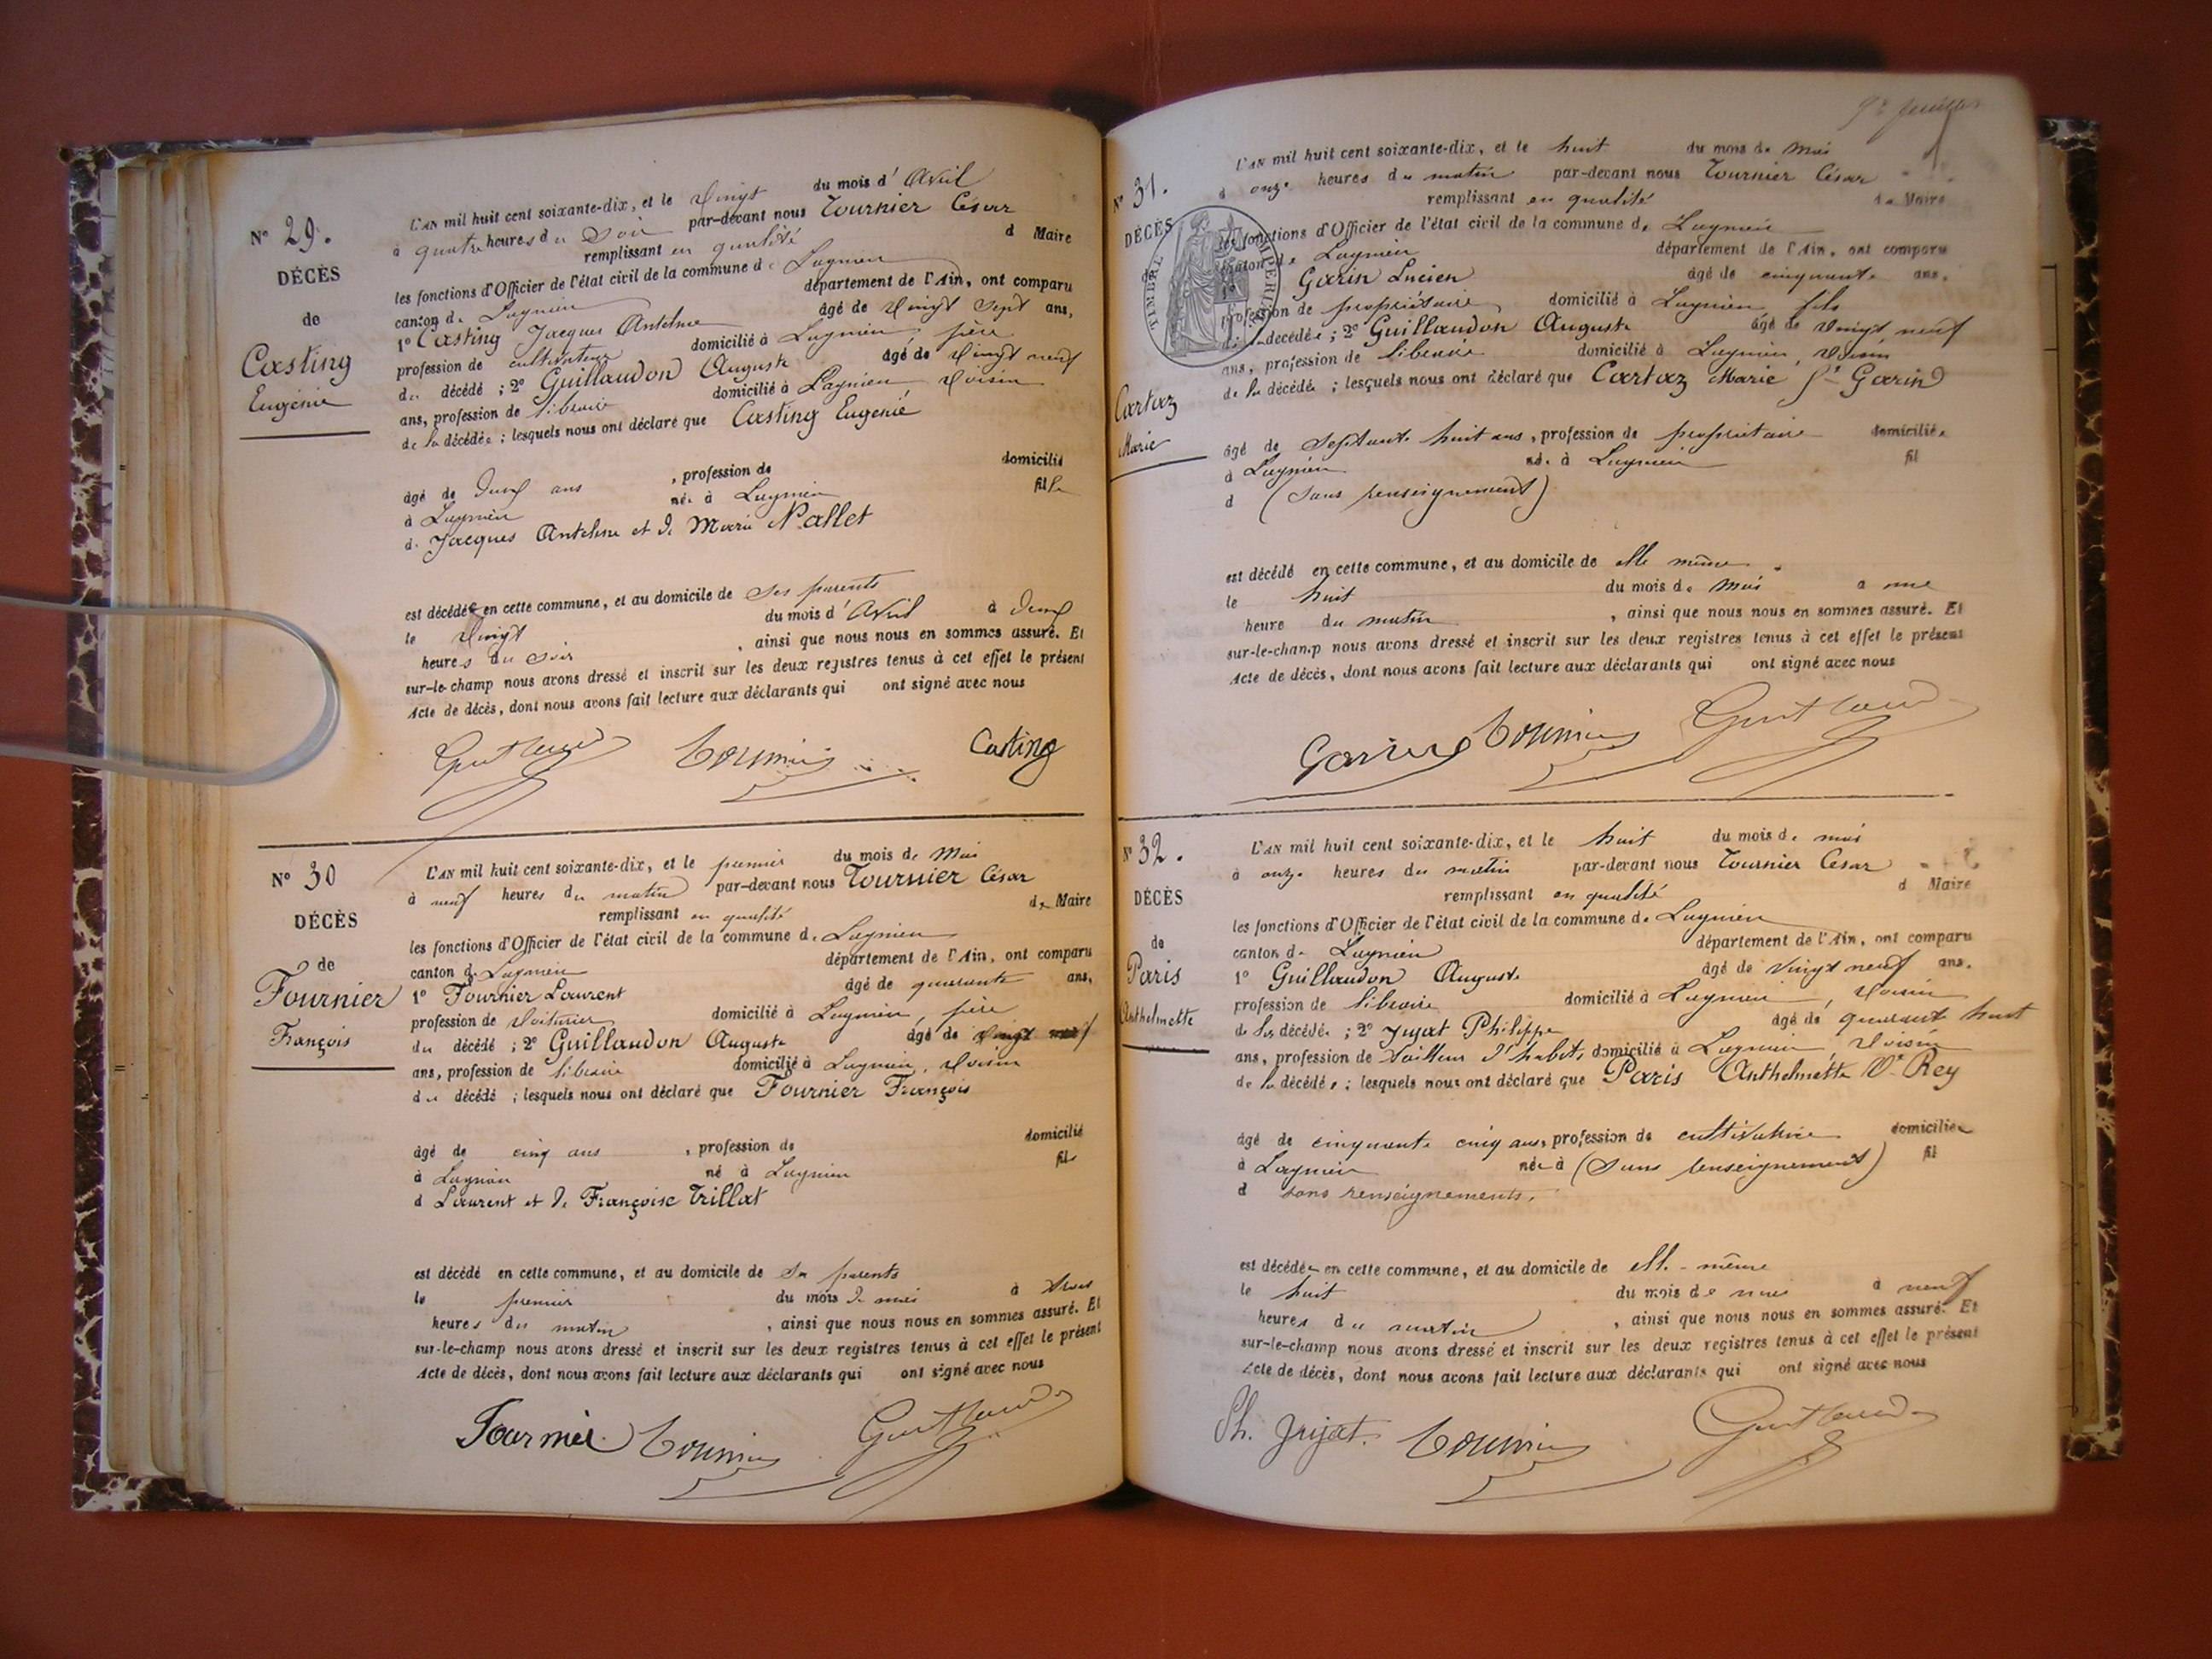 N° 29.
DÉCÈS
de
Casting
Eugénie
L'AN mil huit cent soixante-dix, et le vingt du mois d'Avril
à quatre heures du soir par-devant nous Tournier César
remplissant en qualité d Maire
les fonctions d'Officier de l'état civil de la commune de Lagnieu
canton de Lagnieu département de l'Ain, ont comparu
1° Casting Jacques Antelme âgé de vingt sept ans,
profession de cultivateur domicilié à Lagnieu, père
du décédé ; 2° Guillaudon Auguste âgé de vingt neuf
ans, profession de libraire domicilié à Lagnieu voisin
de la décédée ; lesquels nous ont déclaré que Casting Eugenie
âgé de deux ans , profession de domicilié
à Lagnieu née à Lagnieu fille
de Jacques Antelme et de Marie Nallet
est décédée en cette commune, et au domicile de ses parents
le vingt du mois d'Avril à deux
heures du soir , ainsi que nous nous en sommes assuré. Et
sur-le-champ nous avons dressé et inscrit sur les deux registres tenus à cet effet le présent
Acte de décès, dont nous avons fait lecture aux déclarants qui ont signé avec nous
Casting
N° 30
DÉCÈS
de
Fournier
François
L'AN mil huit cent soixante-dix, et le premier du mois de Mai
à neuf heures du matin par-devant nous Tournier César
remplissant en qualité de Maire
les fonctions d'Officier de l'état civil de la commune de Lagnieu
canton de Lagnieu département de l'Ain, ont comparu
1° Fournier Laurent âgé de quarante ans,
profession de voiturier domicilié à Lagnieu, père
du décédé ; 2° Guillaudon Auguste âgé de vingt neuf
ans, profession de libraire domicilié à Lagnieu, voisin
du décédé ; lesquels nous ont déclaré que Fournier François
âgé de cinq ans , profession de domicilié
à Lagnieu né à Lagnieu fils
d Laurent et de Françoise Trillat
est décédé en cette commune, et au domicile de ses parents
le premier du mois de mai à trois
heures du matin , ainsi que nous nous en sommes assuré. Et
sur-le-champ nous avons dressé et inscrit sur les deux registres tenus à cet effet le présent
Acte de décès, dont nous avons fait lecture aux déclarants qui ont signé avec nous
Fournier
N° 31.
DÉCÈS
de
Cartaz
Marie
TIMBRE IMPÉRIAL
L'AN mil huit cent soixante-dix, et le huit du mois de Mai
à onze heures du matin par-devant nous Tournier César
remplissant en qualité de Maire
les fonctions d'Officier de l'état civil de la commune de Lagnieu
canton de Lagnieu département de l'Ain, ont comparu
Garin Lucien âgé de cinquante ans,
profession de propriétaire domicilié à Lagnieu fils
de la décédée ; 2° Guillaudon Auguste âgé de vingt neuf
ans, profession de libraire domicilié à Lagnieu, voisin
de la décédée ; lesquels nous ont déclaré que Cartaz Marie Ve Garin
âgé de septante huit ans, profession de propriétaire domiciliée
à Lagnieu née à Lagnieu fil
d (sans renseignement)
est décédé en cette commune, et au domicile de elle même
le huit du mois de Mai à une
heure du matin , ainsi que nous nous en sommes assuré. Et
sur-le-champ nous avons dressé et inscrit sur les deux registres tenus à cet effet le présent
Acte de décès, dont nous avons fait lecture aux déclarants qui ont signé avec nous
Garin
N° 32.
DÉCÈS
de
Paris
Anthelmette
L'AN mil huit cent soixante-dix, et le huit du mois de mai
à onze heures du matin par-devant nous Tournier César
remplissant en qualité d Maire
les fonctions d'Officier de l'état civil de la commune de Lagnieu
canton de Lagnieu département de l'Ain, ont comparu
1° Guillaudon Auguste âgé de vingt neuf ans,
profession de libraire domicilié à Lagnieu, voisin
de la décédée ; 2° Jujat Philippe âgé de quarant huit
ans, profession de tailleur d'habits domicilié à Lagnieu voisin
de la décédée ; lesquels nous ont déclaré que Paris Anthelmette Ve Rey
âgé de cinquante cinq ans, profession de cultivatrice domiciliée
à Lagnieu née à (sans renseignement) fil
d sans renseignements.
est décédée en cette commune, et au domicile de elle-même
le huit du mois de mai à neuf
heures du matin , ainsi que nous nous en sommes assuré. Et
sur-le-champ nous avons dressé et inscrit sur les deux registres tenus à cet effet le présent
Acte de décès, dont nous avons fait lecture aux déclarants qui ont signé avec nous
Ph. Jujat.